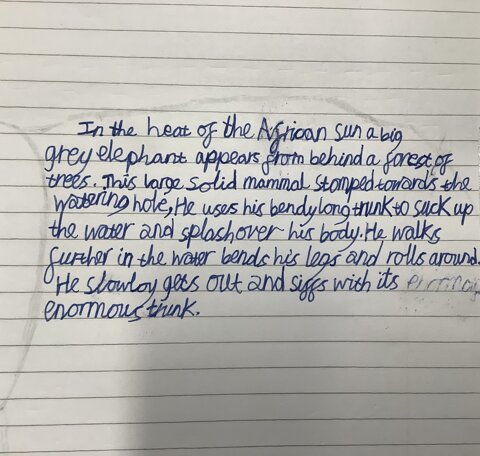 In the heat of the African sun a big
grey elephant appears from behind a forest of
trees. This large solid mammal stomped towards the
watering hole, He uses his bendy long trunk to suck up
the water and splash over his body. He walks
further in the water bends his legs and rolls around.
He slowloy gets out and siffs with its
enormous thunk.